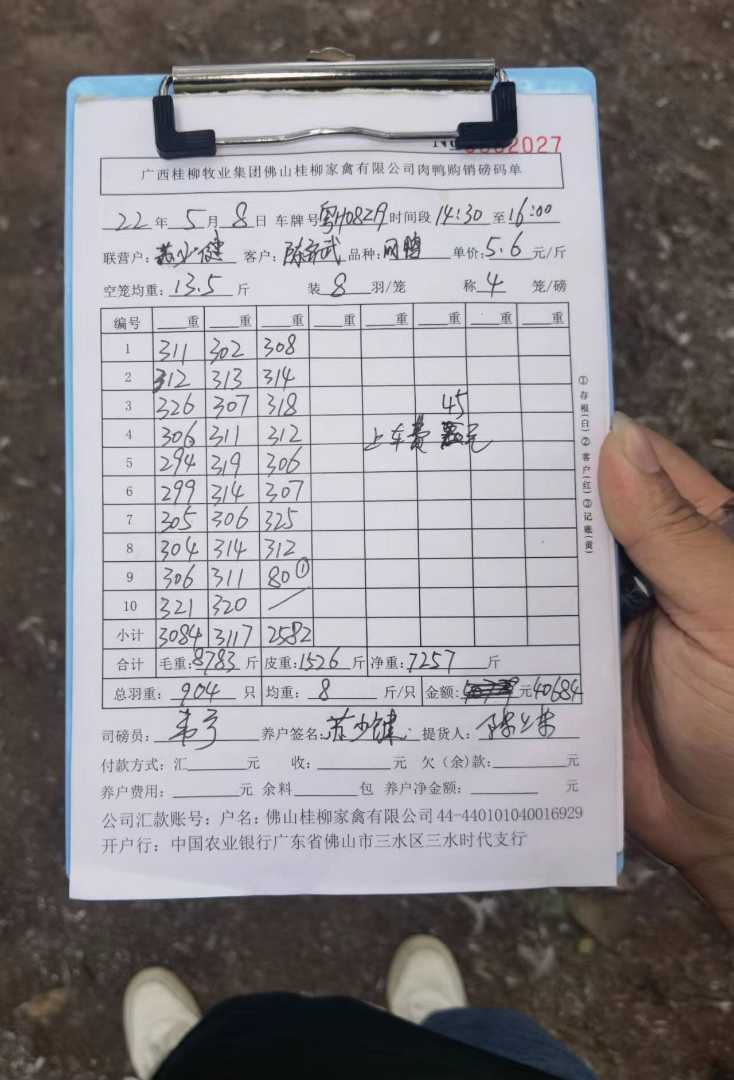 2027
广西桂柳牧业集团佛山桂柳家禽有限公司肉鸭购销磅码单
22年5月8日 车牌号 粤H08Z9 时间段 14:30 至 16:00
联营户: 苏少健 客户: 陈 武 品种: 肉鸭 单价: 5.6 元/斤
空笼均重: 13.5 斤 装 8 羽/笼 称 4 笼/磅
编号 重 重 重 重 重 重 重 重
1 311 302 308
2 312 313 314
3 326 307 318 45
4 306 311 312 上车费 元
5 294 319 306
6 299 314 307
7 305 306 325
8 304 314 312
9 306 311 80①
10 321 320 /
小计 3084 3117 2582
合计 毛重: 8783 斤 皮重: 1526 斤 净重: 7257 斤
总羽重: 904 只 均重: 8 斤/只 金额: 元 40684
司磅员: 养户签名: 苏少健 提货人:
付款方式: 汇 元 收: 元 欠(余)款: 元
养户费用: 元 余料 包 养户净金额: 元
公司汇款账号: 户名: 佛山桂柳家禽有限公司 44-440101040016929
开户行: 中国农业银行广东省佛山市三水区三水时代支行
①存根(白)②客户(红)③记账(黄)